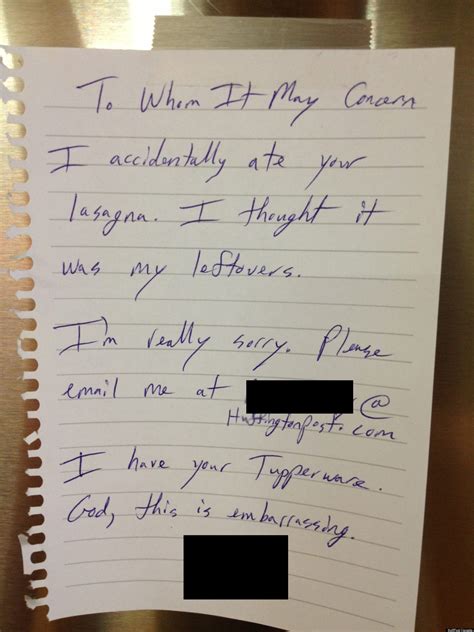 To Whom It May Concern
I accidentally ate your
lasagna. I thought it
was my leftovers.
I'm really sorry. Please
email me at @
Huffingtonpost.com
I have your Tupperware.
God, this is embarrassing.